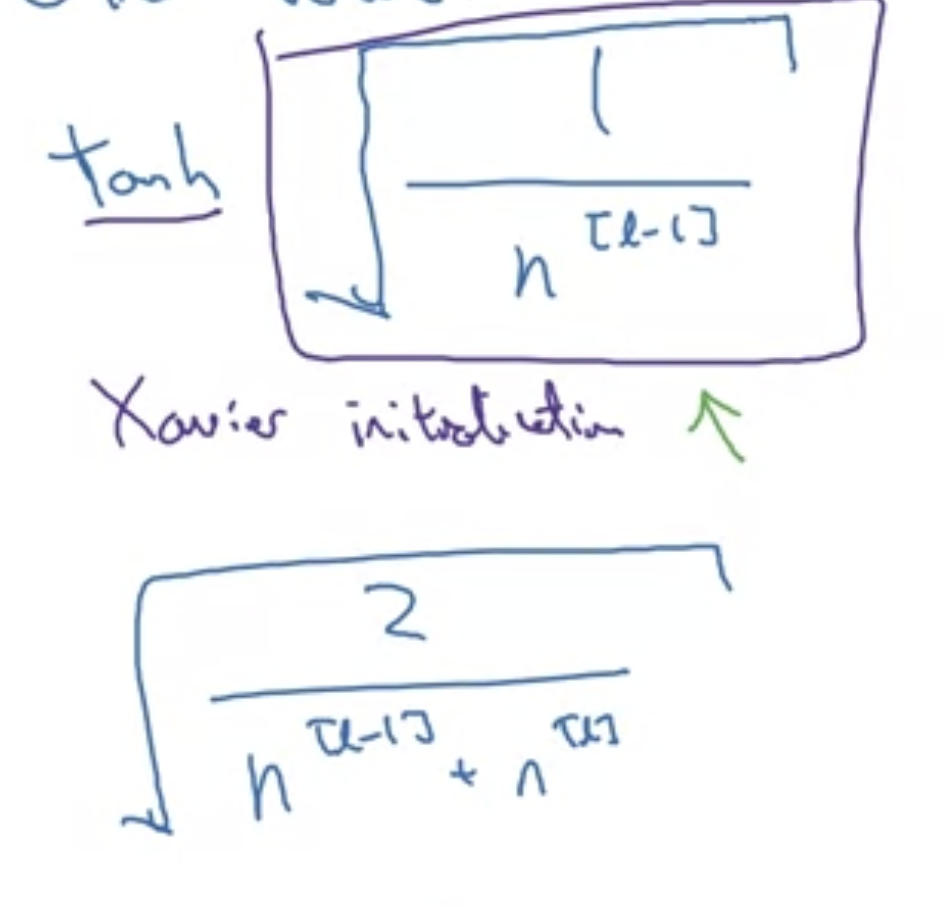 tanh √(1 / n^[l-1])
Xavier initialization
√(2 / (n^[l-1] + n^[l]))